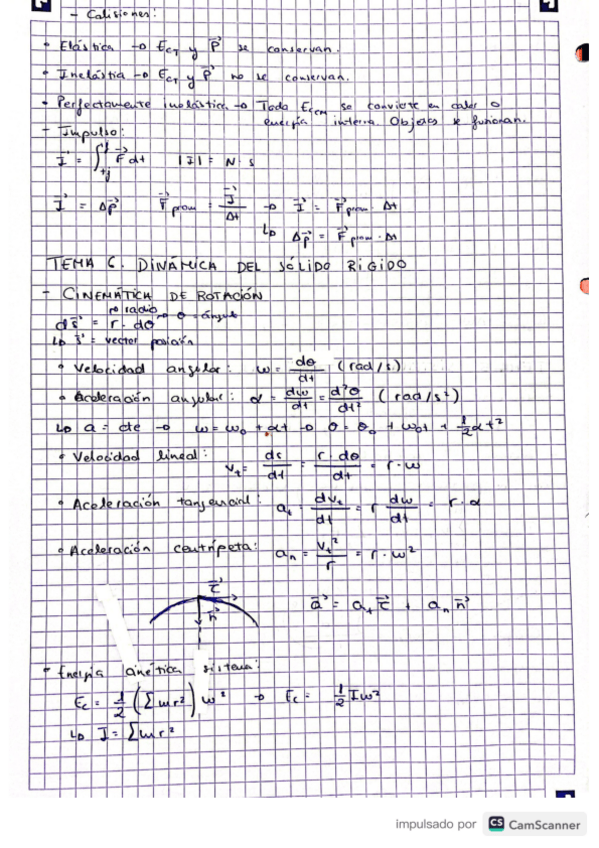 - Colisiones:
• Elástica → E_CT y P⃗ se conservan.
• Inelástia → E_CT y P⃗ no se conservan.
• Perfectamente inelástica → Toda E_CCM se convierte en calor o
energía interna. Objetos se funcionan.
- Impulso:
I⃗ = ∫ F⃗ dt   |I| = N·s
I⃗ = Δp⃗   F⃗prom = I⃗/Δt → I⃗ = F⃗prom · Δt
↳ Δp⃗ = F⃗prom · Δt
TEMA 6. DINÁMICA DEL SÓLIDO RIGIDO
- CINEMÁTICA DE ROTACIÓN
↱ radio → θ = ángulo
ds⃗ = r · dθ
↳ s⃗ = vector posición
• Velocidad angular: ω = dθ/dt (rad/s)
• Aceleración angular: α = dω/dt = d²θ/dt² (rad/s²)
↳ a = cte → ω = ω₀ + αt → θ = θ₀ + ω₀t + 1/2 αt²
• Velocidad lineal: v_t = ds/dt = r·dθ/dt = r·ω
• Aceleración tangencial: a_t = dv_t/dt = r dω/dt = r·α
• Aceleración centrípeta: a_n = v_t²/r = r·ω²
τ⃗
n⃗
a⃗ = a_t τ⃗ + a_n n⃗
• Energía cinética sistema:
E_c = 1/2 (Σmr²) ω² → E_c = 1/2 Iω²
↳ I = Σmr²
impulsado por CS CamScanner